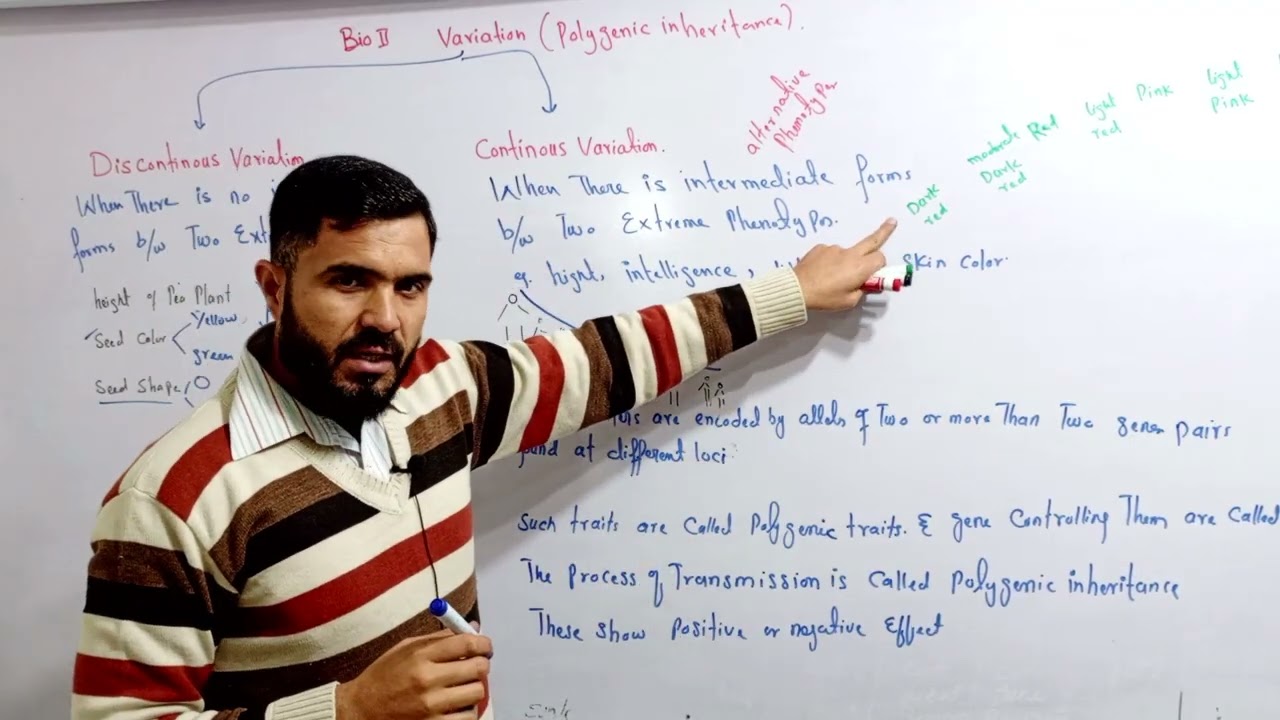 Bio II Variation (Polygenic inheritance).
Discontinous Variation
When There is no
forms b/w Two Ext
height of Pea Plant
Seed Color
Yellow
green
Seed Shape
Continous Variation.
alternative
Phenotypes
When There is intermediate forms
b/w Two Extreme Phenotypes.
eg. hight, intelligence, Skin Color.
Dark
red
moderate
Dark
red
Red
light
red
Pink
light
Pink
are encoded by allels of Two or more Than Two genes pairs
found at different loci
Such traits are Called Polygenic traits. & gene Controlling Them are Called
The Process of Transmission is Called Polygenic inheritance
These show Positive or negative Effect